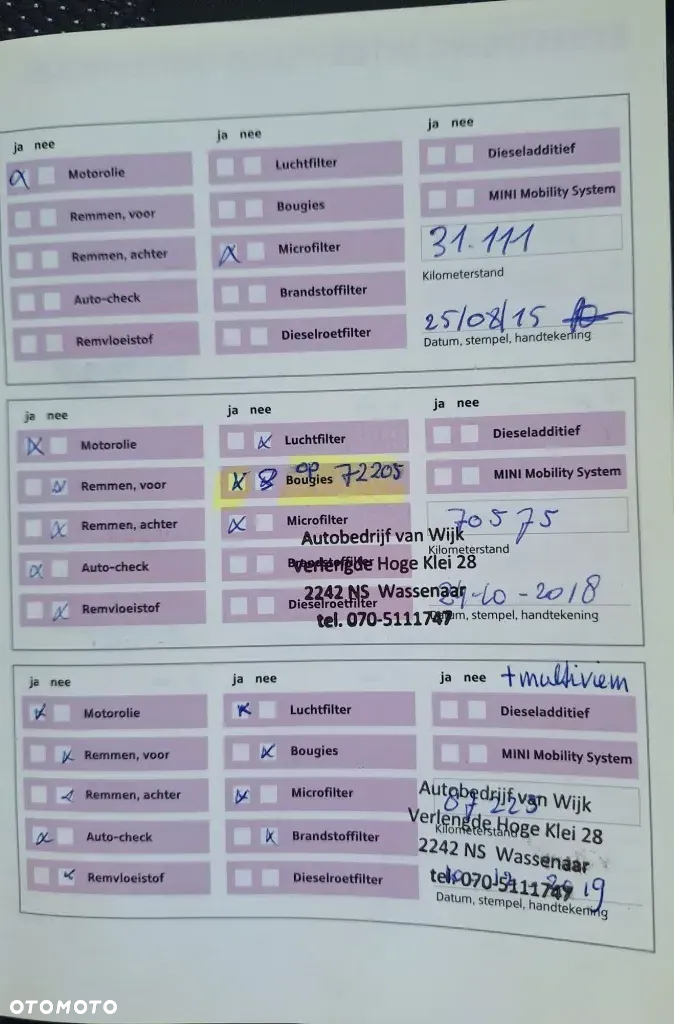 ja nee
Motorolie
Remmen, voor
Remmen, achter
Auto-check
Remvloeistof
ja nee
Luchtfilter
Bougies
Microfilter
Brandstoffilter
Dieselroetfilter
ja nee
Dieseladditief
MINI Mobility System
31.111
Kilometerstand
25/08/15
Datum, stempel, handtekening
ja nee
Motorolie
Remmen, voor
Remmen, achter
Auto-check
Remvloeistof
ja nee
Luchtfilter
Bougies op 72205
Microfilter
Brandstoffilter
Dieselroetfilter
ja nee
Dieseladditief
MINI Mobility System
70575
Kilometerstand
-10-2018
Datum, stempel, handtekening
Autobedrijf van Wijk
Verlengde Hoge Klei 28
2242 NS Wassenaar
tel. 070-5111747
ja nee
Motorolie
Remmen, voor
Remmen, achter
Auto-check
Remvloeistof
ja nee
Luchtfilter
Bougies
Microfilter
Brandstoffilter
Dieselroetfilter
ja nee +multiriem
Dieseladditief
MINI Mobility System
87225
Kilometerstand
2019
Datum, stempel, handtekening
Autobedrijf van Wijk
Verlengde Hoge Klei 28
2242 NS Wassenaar
tel. 070-5111747
OTOMOTO